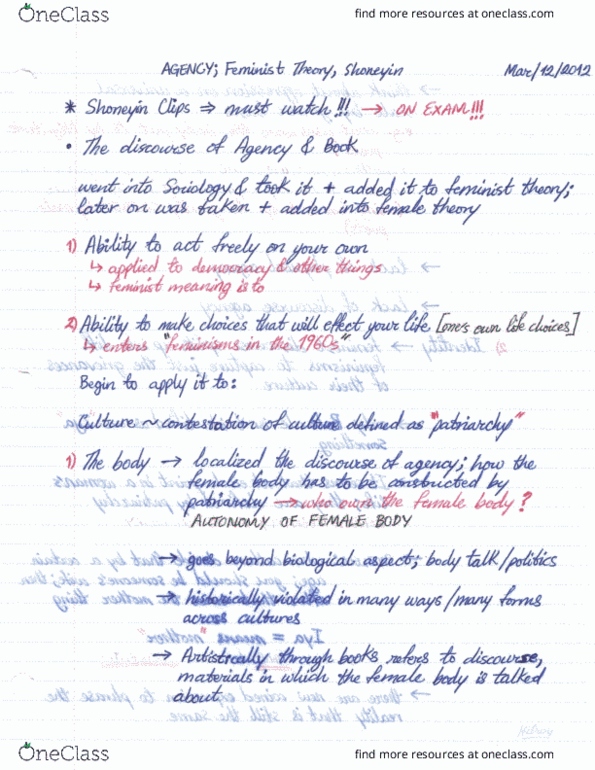 OneClass
find more resources at oneclass.com
AGENCY; Feminist Theory, Shoneyin Mar/12/2012
* Shoneyin Clips ⇒ must watch!!! → ON EXAM!!!
• The discourse of Agency & Book
went into Sociology & took it + added it to feminist theory;
later on was taken + added into female theory
1) Ability to act freely on your own
↳ applied to democracy & other things
↳ feminist meaning is to
2) Ability to make choices that will effect your life [one's own life choices]
↳ enters "feminisms in the 1960s"
Begin to apply it to:
Culture ~ contestation of culture defined as "patriarchy"
1) The body → localized the discourse of agency; how the
female body has to be constructed by
patriarchy → who owns the female body?
AUTONOMY OF FEMALE BODY
→ goes beyond biological aspect; body talk/politics
→ historically violated in many ways/many forms
across cultures
→ Artistically through books, refers to discourse,
materials in which the female body is talked
about
OneClass
find more resources at oneclass.com